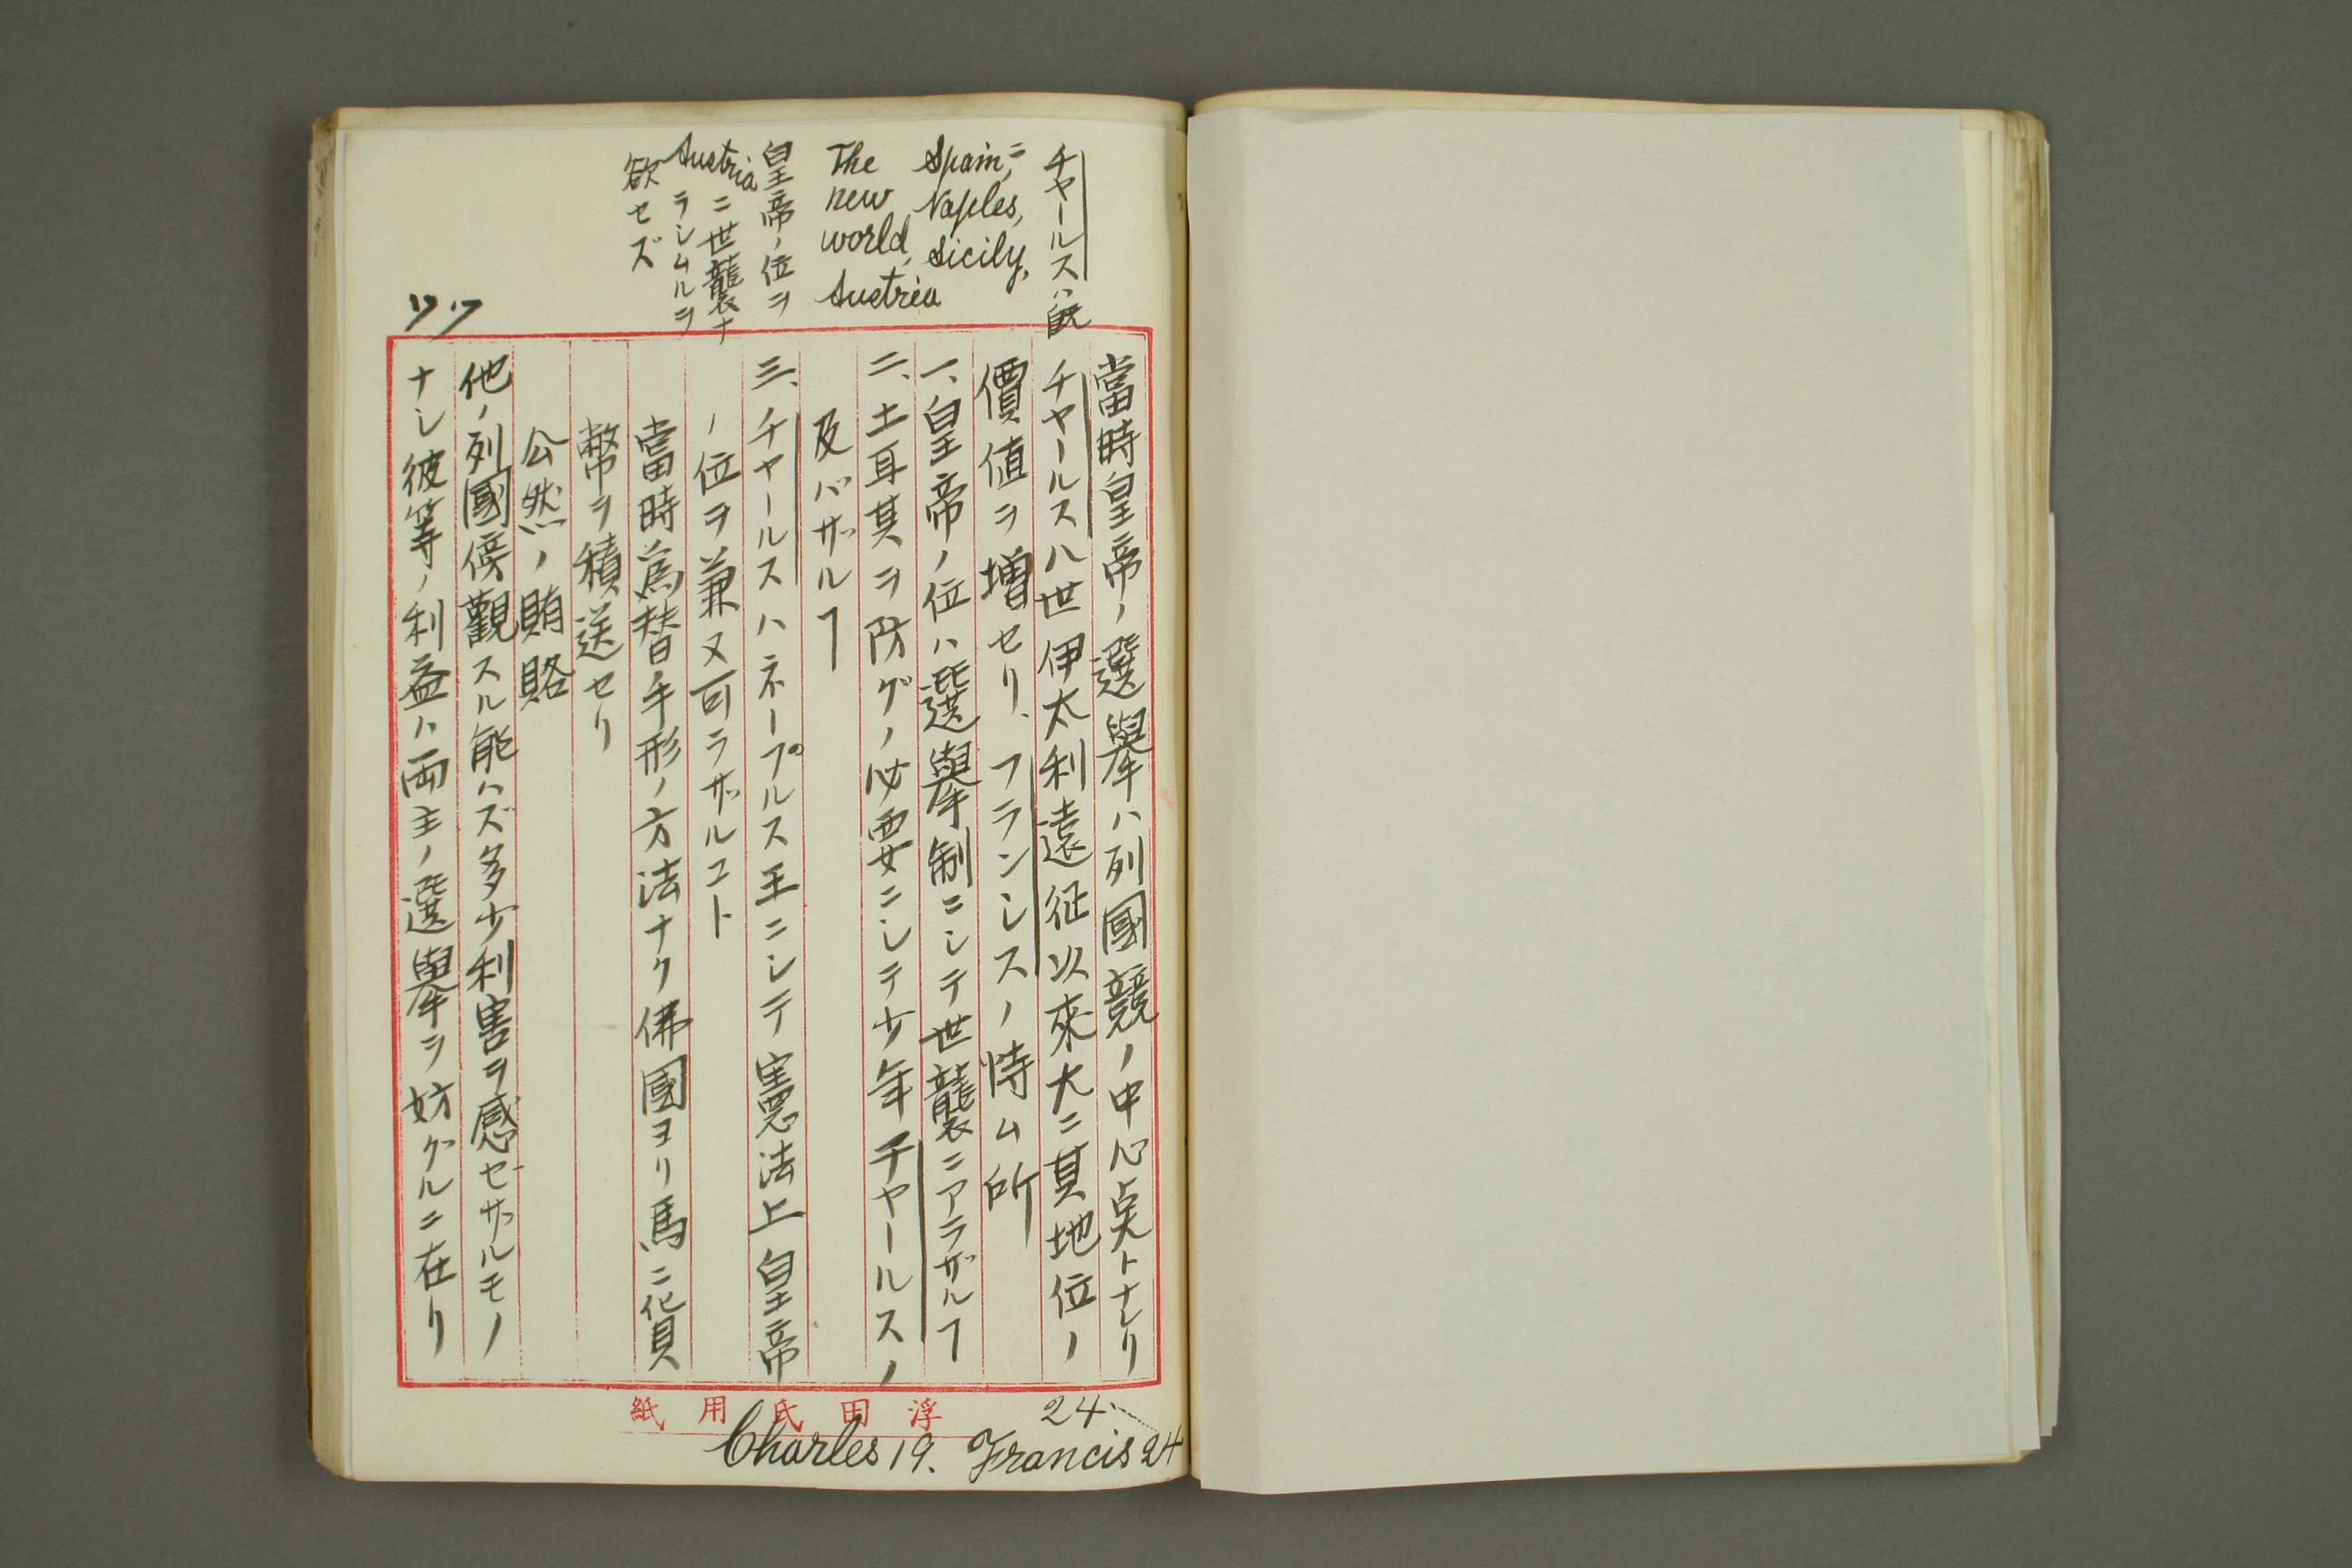 チャールスハ既ニ
Spain,
Naples,
Sicily,
The
new
world,
Austria
皇帝ノ位ヲ
Austriaニ世襲ナ
ラシムルヲ
欲セズ
當時皇帝ノ選擧ハ列國競ノ中心点トナレリ
チャールス八世伊太利遠征以來大ニ其地位ノ
價値ヲ増セリ、フランシスノ恃ム所
一、皇帝ノ位ハ選擧制ニシテ世襲ニアラザルヿ
二、土耳其ヲ防グノ必要ニシテ少年チャールスノ
及バザルヿ
三、チャールスハネープルス王ニシテ憲法上皇帝
ノ位ヲ兼ヌ可ラザルコト
當時為替手形ノ方法ナク佛國ヨリ馬ニ貨
幣ヲ積送セリ
公然ノ賄賂
他ノ列國傍觀スル能ハズ多少利害ヲ感セザルモノ
ナシ彼等ノ利益ハ両主ノ選擧ヲ妨グルニ在リ
浮田氏用紙
24
Charles 19. Francis 24